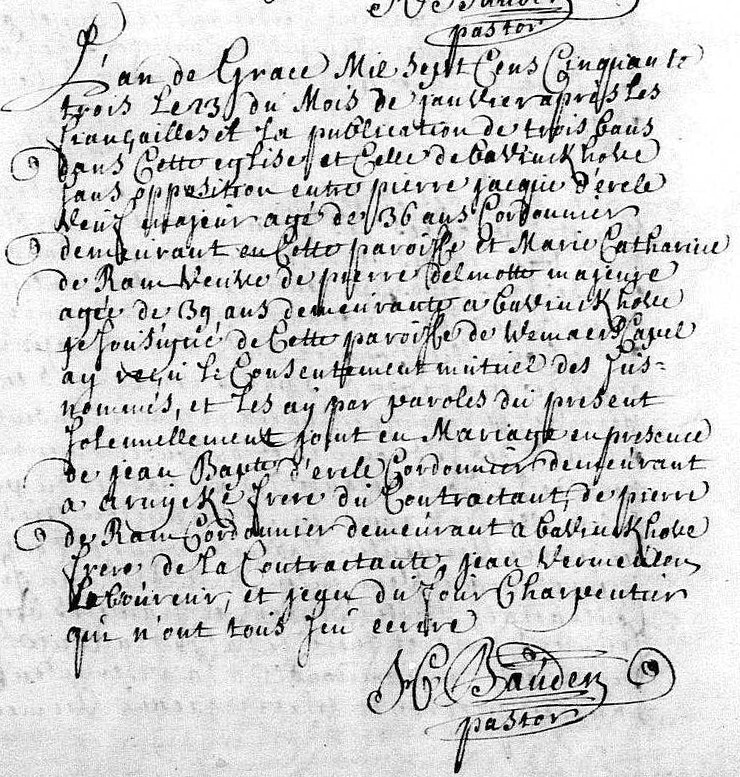 pastor
L'an de Grace Mil Sept Cens Cinquante
trois Le 23 du Mois de janvier apres les
fiançailles et la publication de trois bans
dans Cette eglise et Celle de bavinckhove
sans opposition entre pierre jacque d'erele
veuf majeur agé de 36 ans Cordonnier
demeurant en Cette paroisse et Marie Catharine
de Ram veuve de pierre Delmotte majeure
agée de 39 ans demeurante a bavinckhove
je soussigné de Cette paroisse de Wemaers Capel
ay reçu le Consentement mutuel des sus=
nommés, et les ay par paroles du present
solennellement joint en Mariage en presence
de jean Bapte d'erele Cordonnier demeurant
a arnycke frere du Contractant, de pierre
de Ram Cordonnier demeurant a bavinckhove
frere de la Contractante, jean vermeulen
laboureur, et du Jour Charpentier
qui n'ont tous sceu ecrire
Bauden
pastor